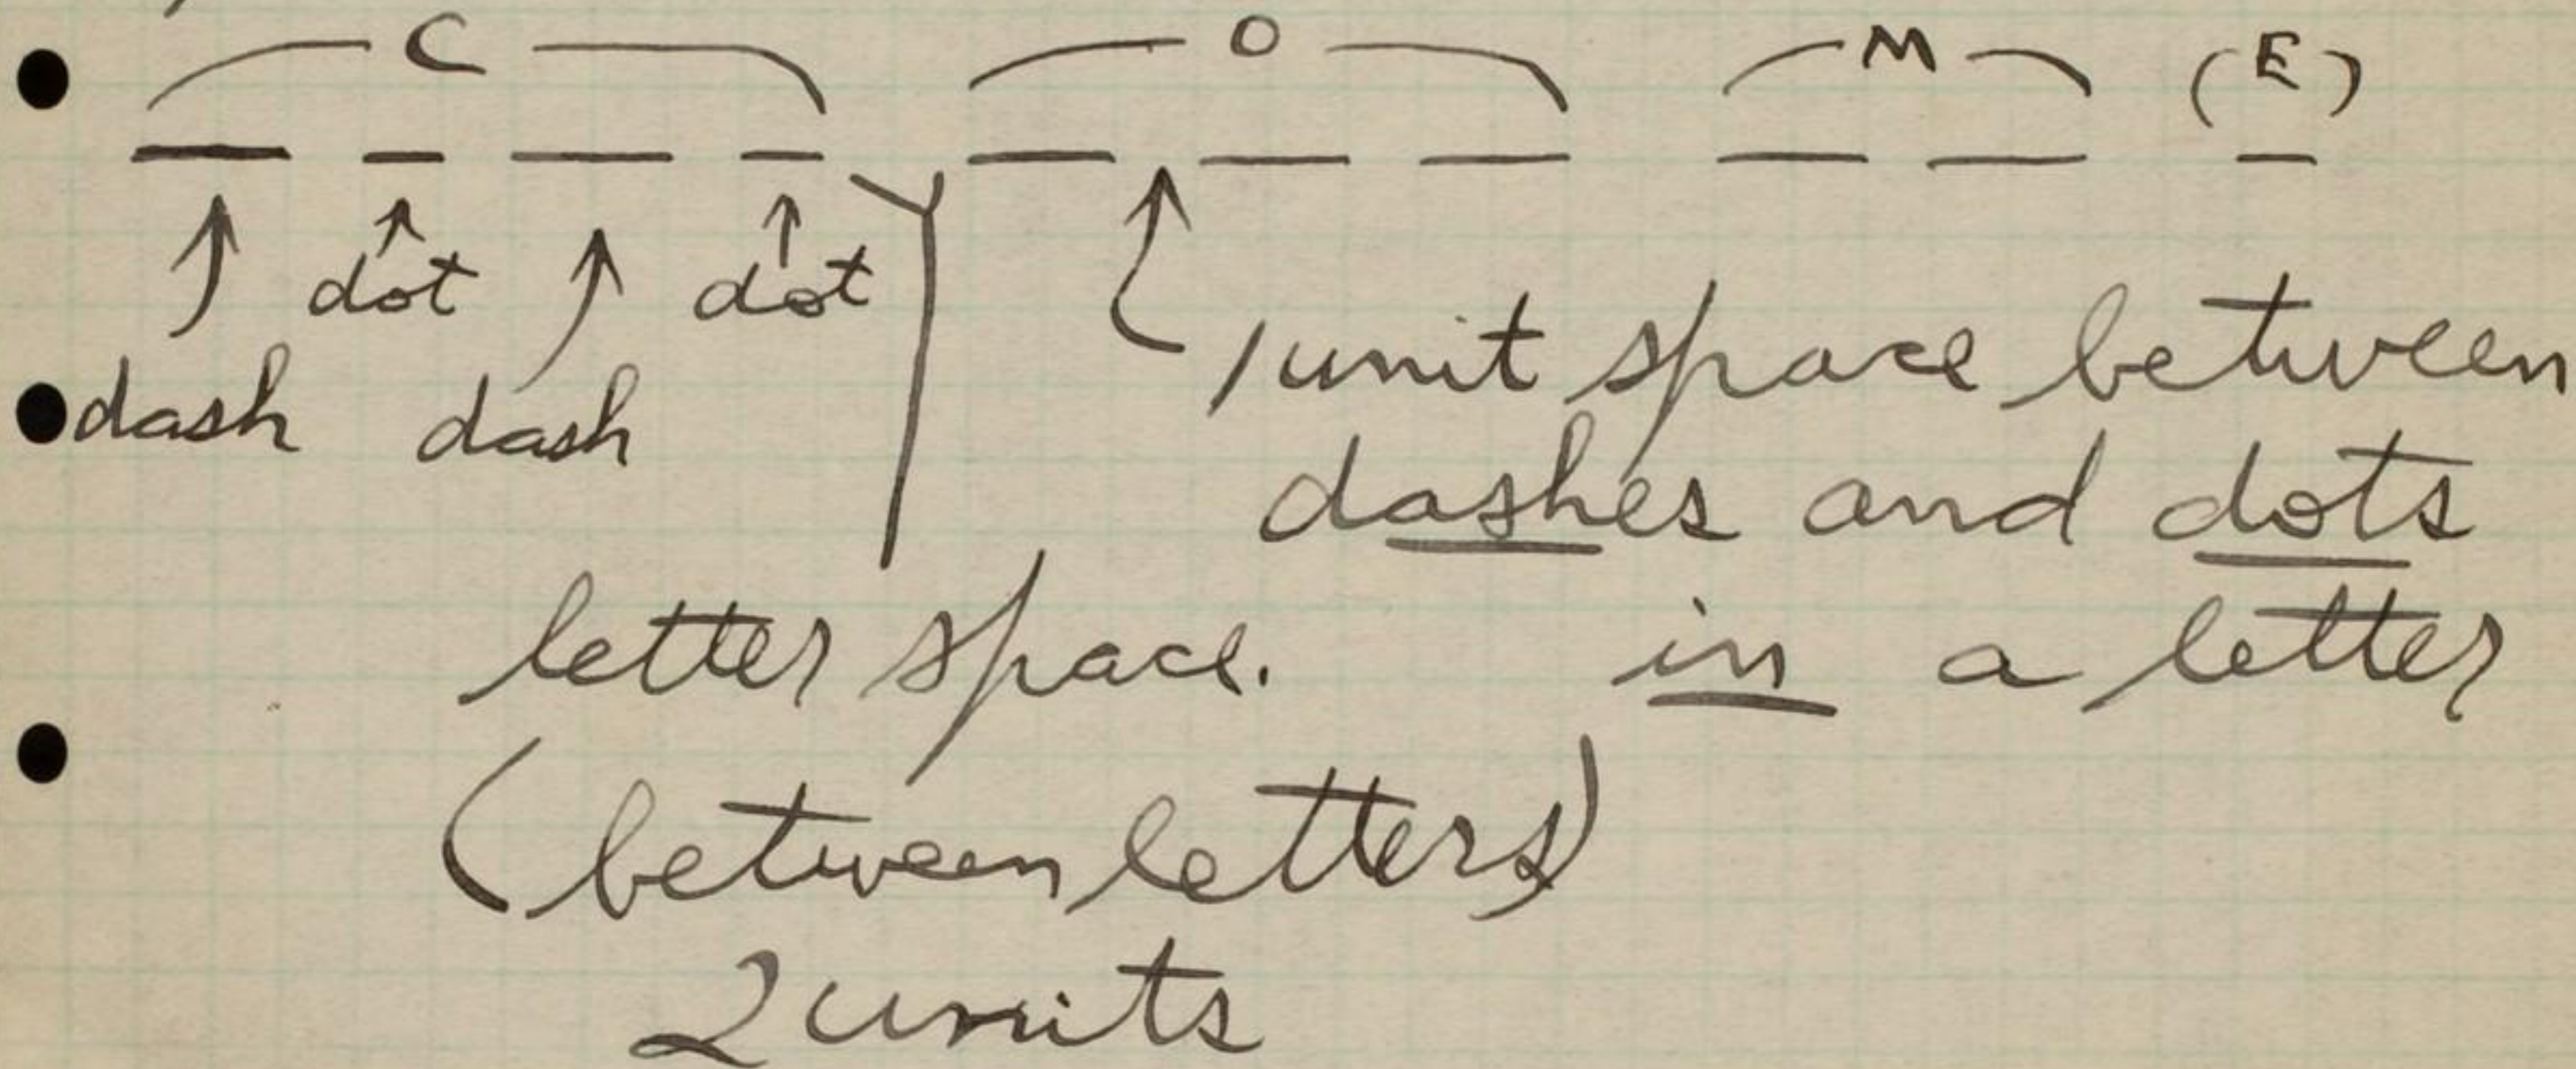 C O M (E)
dot dot
dash dash
1 unit space between
dashes and dots
in a letter
letter space.
(between letters)
2 units